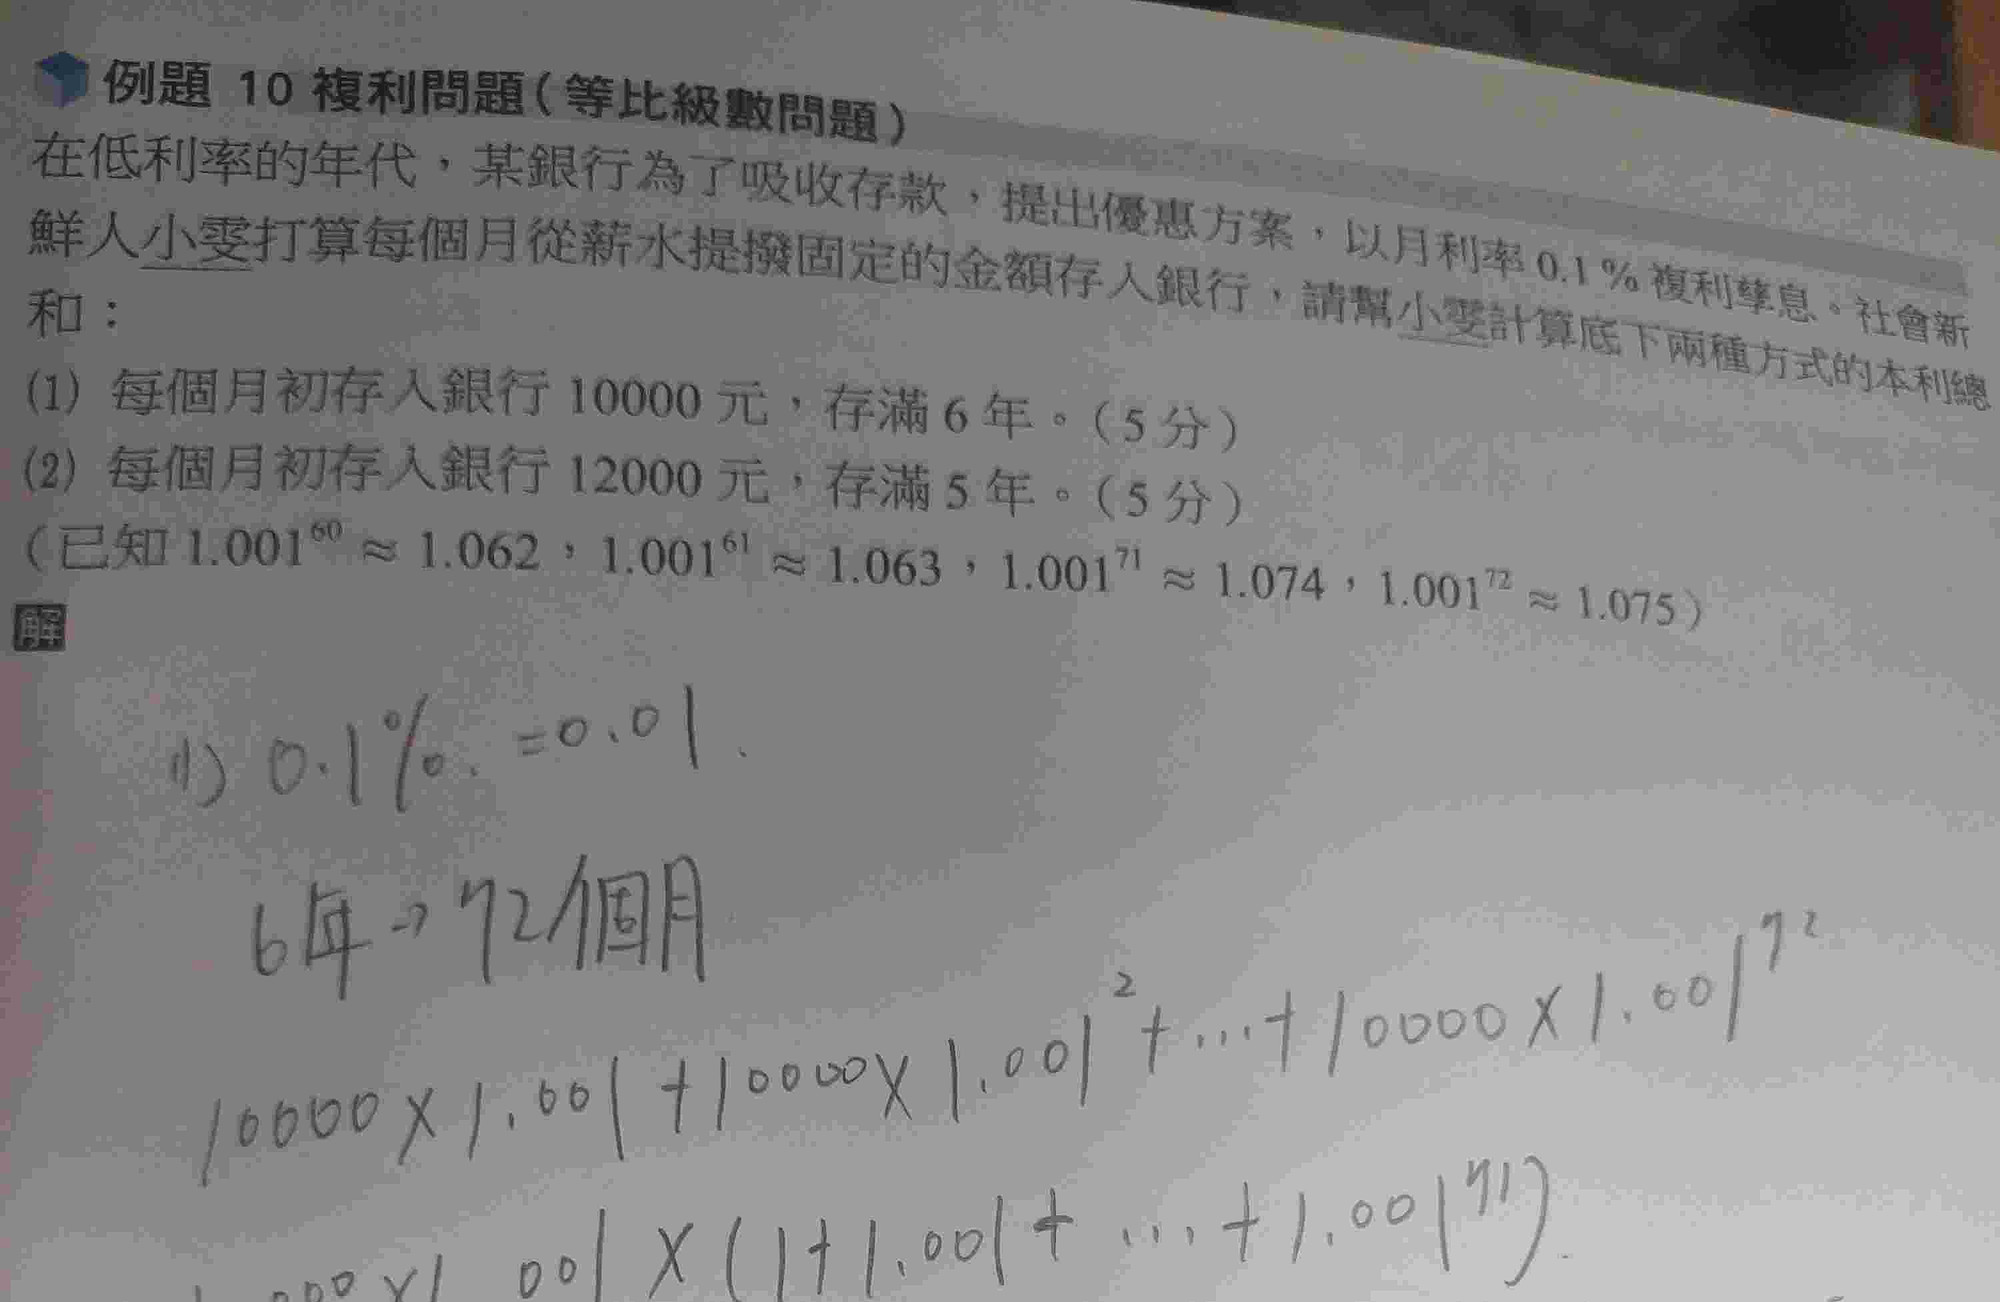 例題 10 複利問題(等比級數問題)
在低利率的年代,某銀行為了吸收存款,提出優惠方案,以月利率 0.1% 複利孳息。社會新
鮮人小雯打算每個月從薪水提撥固定的金額存入銀行,請幫小雯計算底下兩種方式的本利總
和:
(1) 每個月初存入銀行 10000 元,存滿 6 年。(5 分)
(2) 每個月初存入銀行 12000 元,存滿 5 年。(5 分)
(已知 1.001⁶⁰ ≈ 1.062,1.001⁶¹ ≈ 1.063,1.001⁷¹ ≈ 1.074,1.001⁷² ≈ 1.075)
解
(1) 0.1%. =0.01.
6年→72個月
10000×1.001+10000×1.001²+...+10000×1.001⁷²
001×(1+1.001+...+1.001⁷¹).